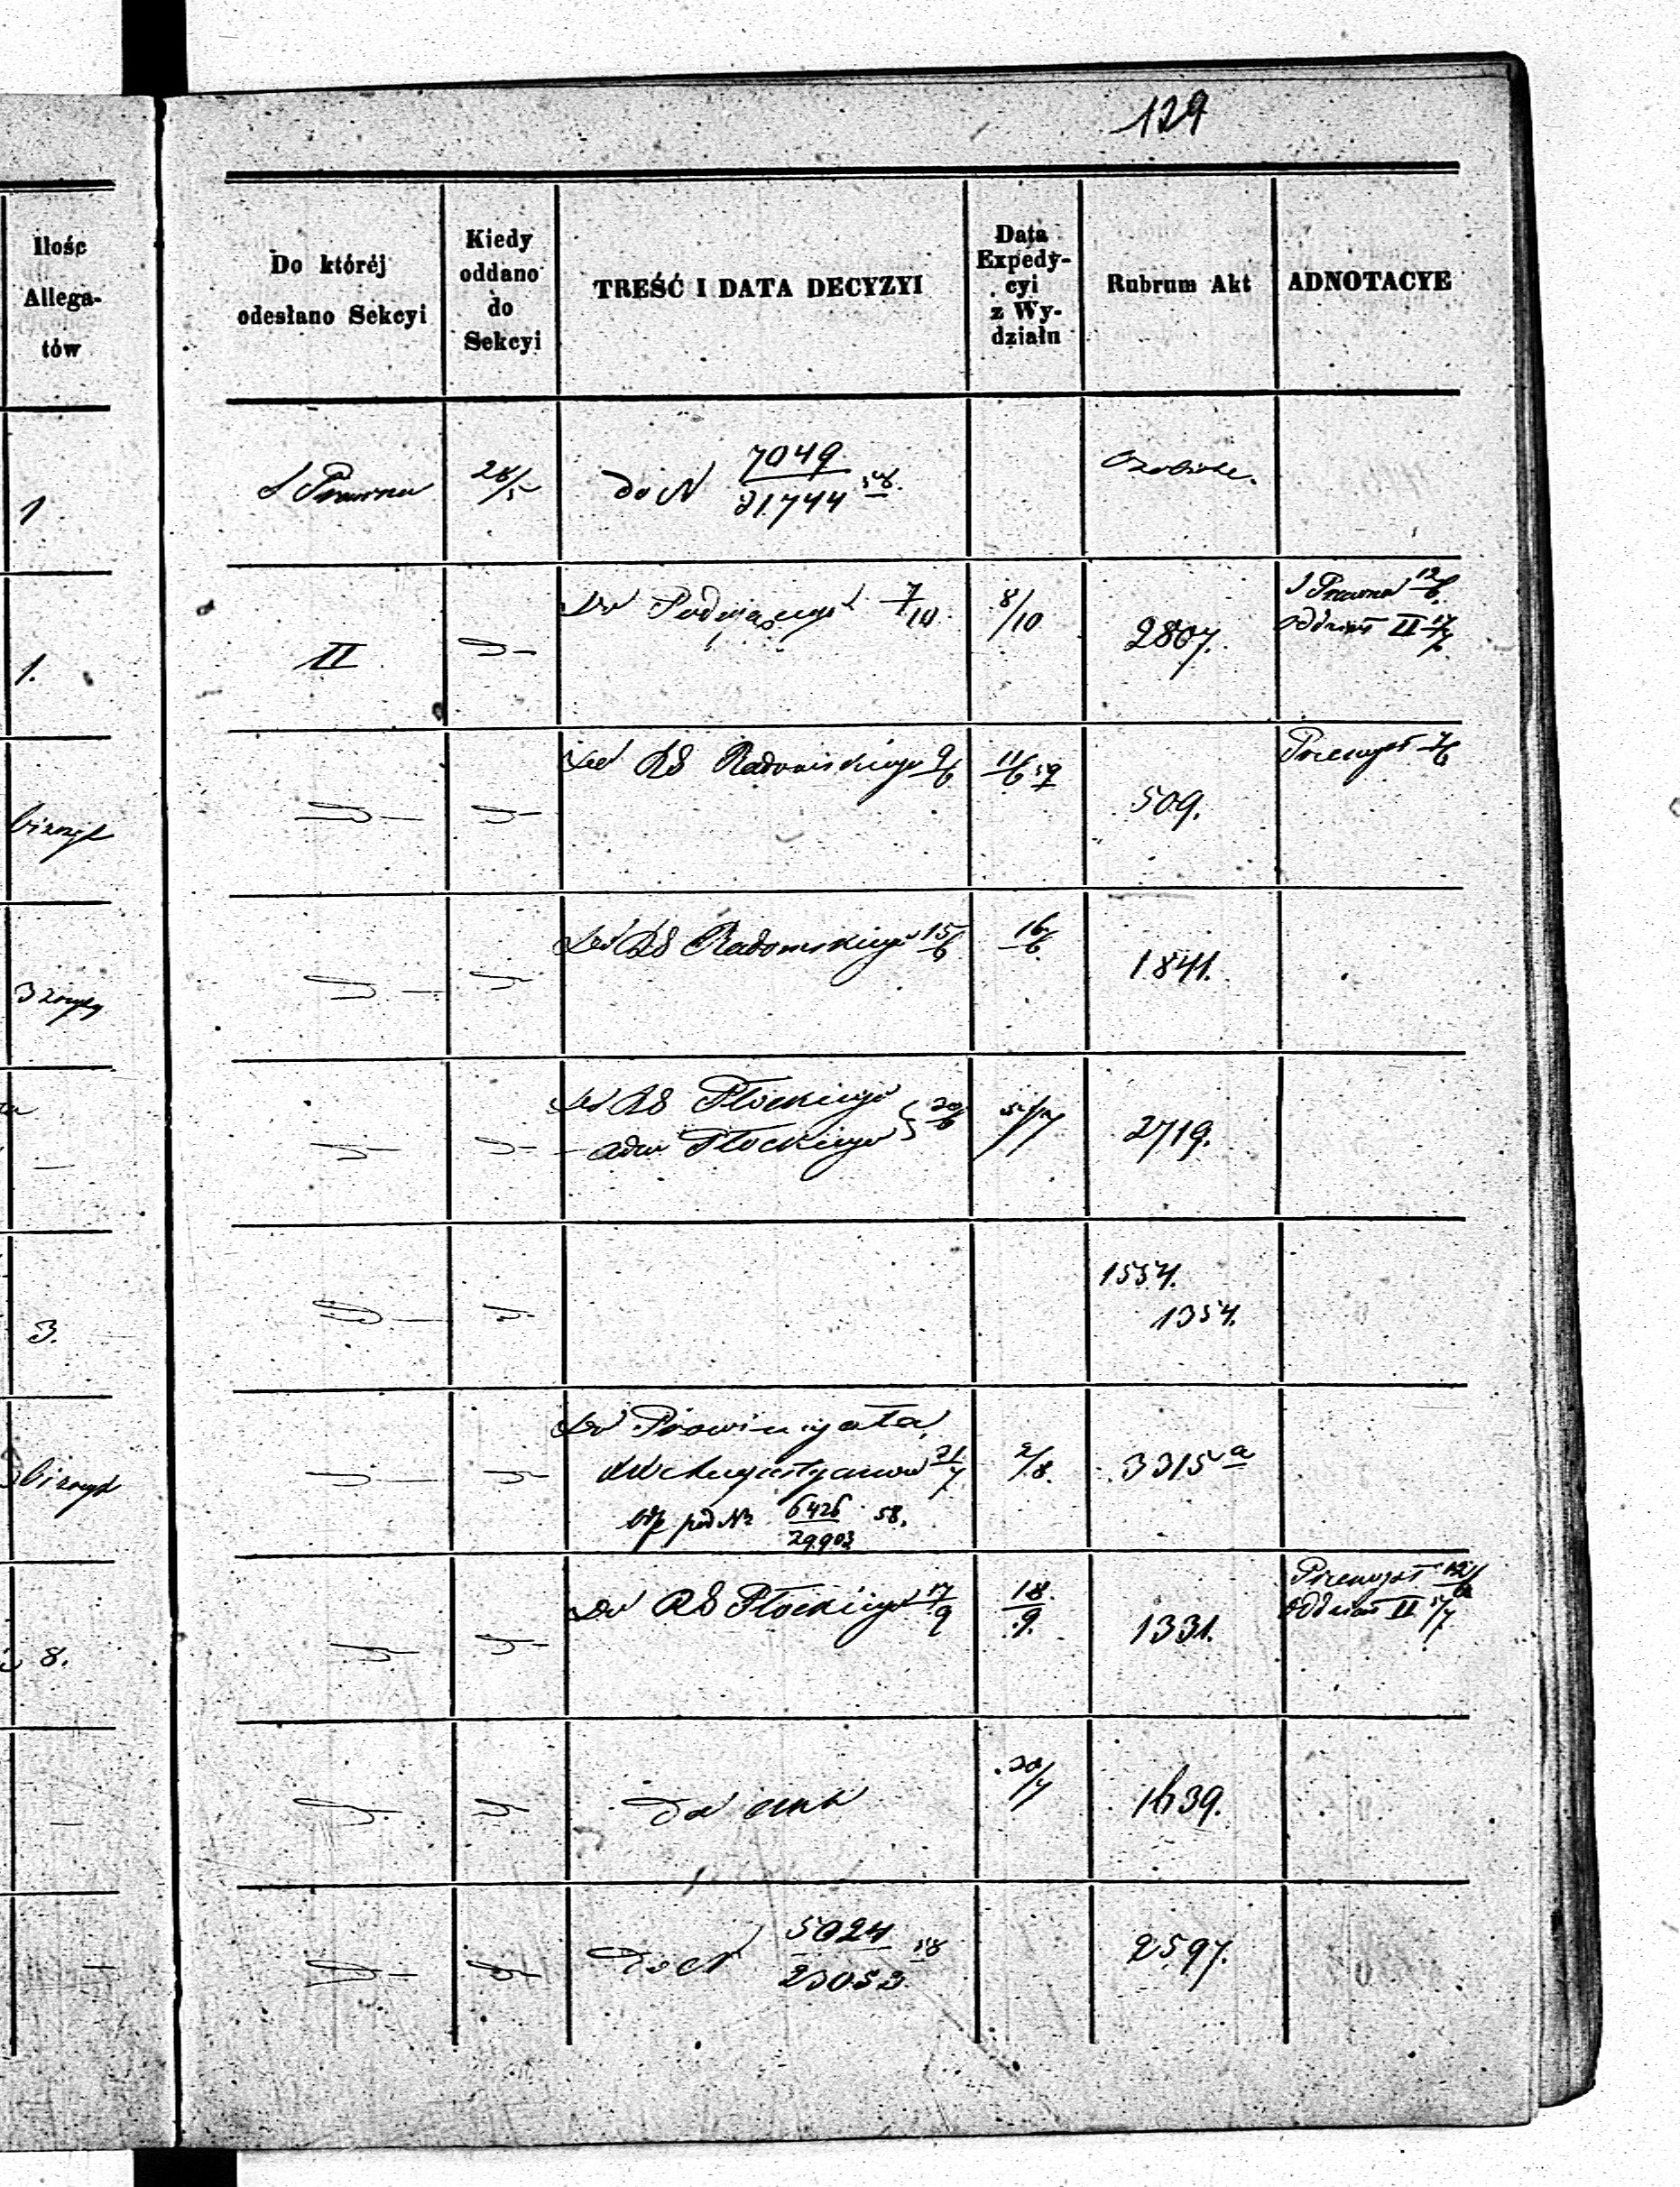 129
Ilość
Allega-
tów
Do któréj
odesłano Sekcyi
Kiedy
oddano
do
Sekcyi
TREŚĆ I DATA DECYZYI
Data
Expedy-
cyi
z Wy-
działu
Rubrum Akt
ADNOTACYE
1
S Prawna
28/5
do N 7049/31744 58.
1.
II
Do 7/10
8/10
2807.
S Prawna 12/6.
Oddział II 17/7
Do RS Radomskiego 9/6
11/6 59
509.
Przemysł 7/6
Do RS Radomskiego 15/6
16/6.
1841.
Do RS Płockiego
Adm Płockiego } 30/6
5/7
2719.
3.
1554.
1354.
Do Prowincyała
XX Augustyanów 21/7
odp pod Nr 6426/29903 58.
2/8.
3315 a
8.
Do RS Płockiego 17/9
18/9.
1331.
Przemysł 12/6
Oddział II 5/7
Do akt
20/7
1639.
Do N 5024/23053. 58
2597.